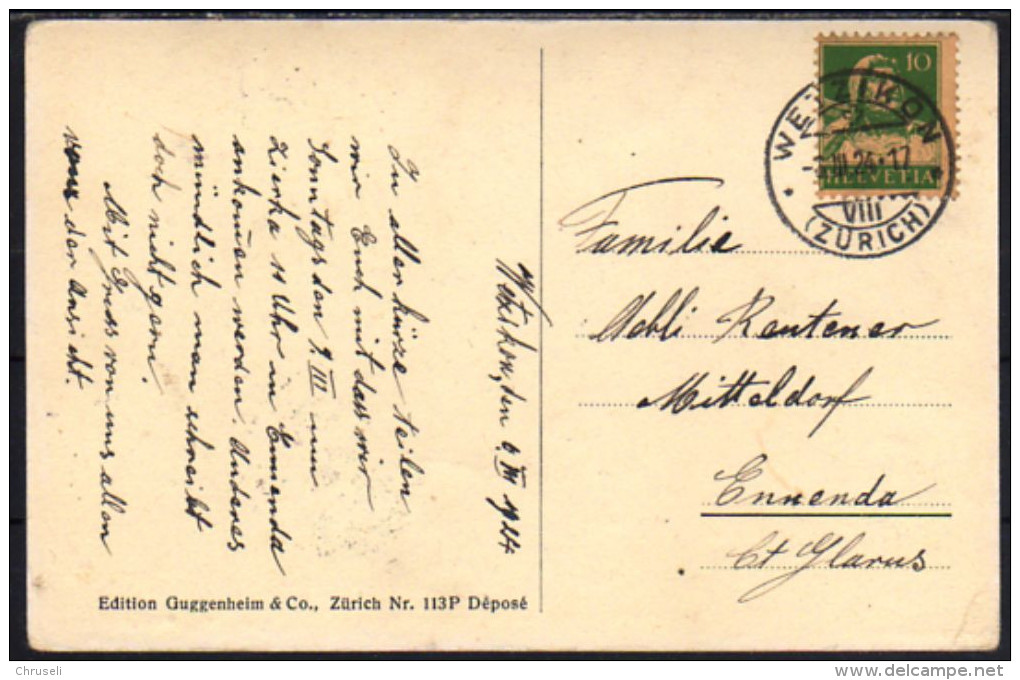 Wetzikon, den 6. III 1924
In aller kürze teilen
wir Euch mit das wir
Sonntags den 9. III um
zirka 11 Uhr in Ennenda
ankom̅en werden. Anderes
mündlich man schreibt
doch nicht gern.
Mit Gruss von uns allen
der Ansicht.
Edition Guggenheim & Co., Zürich Nr. 113P Déposé
10
HELVETIA
WETZIKON
III.24.-17
VIII
(ZÜRICH)
Familie
Aebli Rentener
Mitteldorf
Ennenda
Ct Glarus
Chruseli
www.delcampe.net